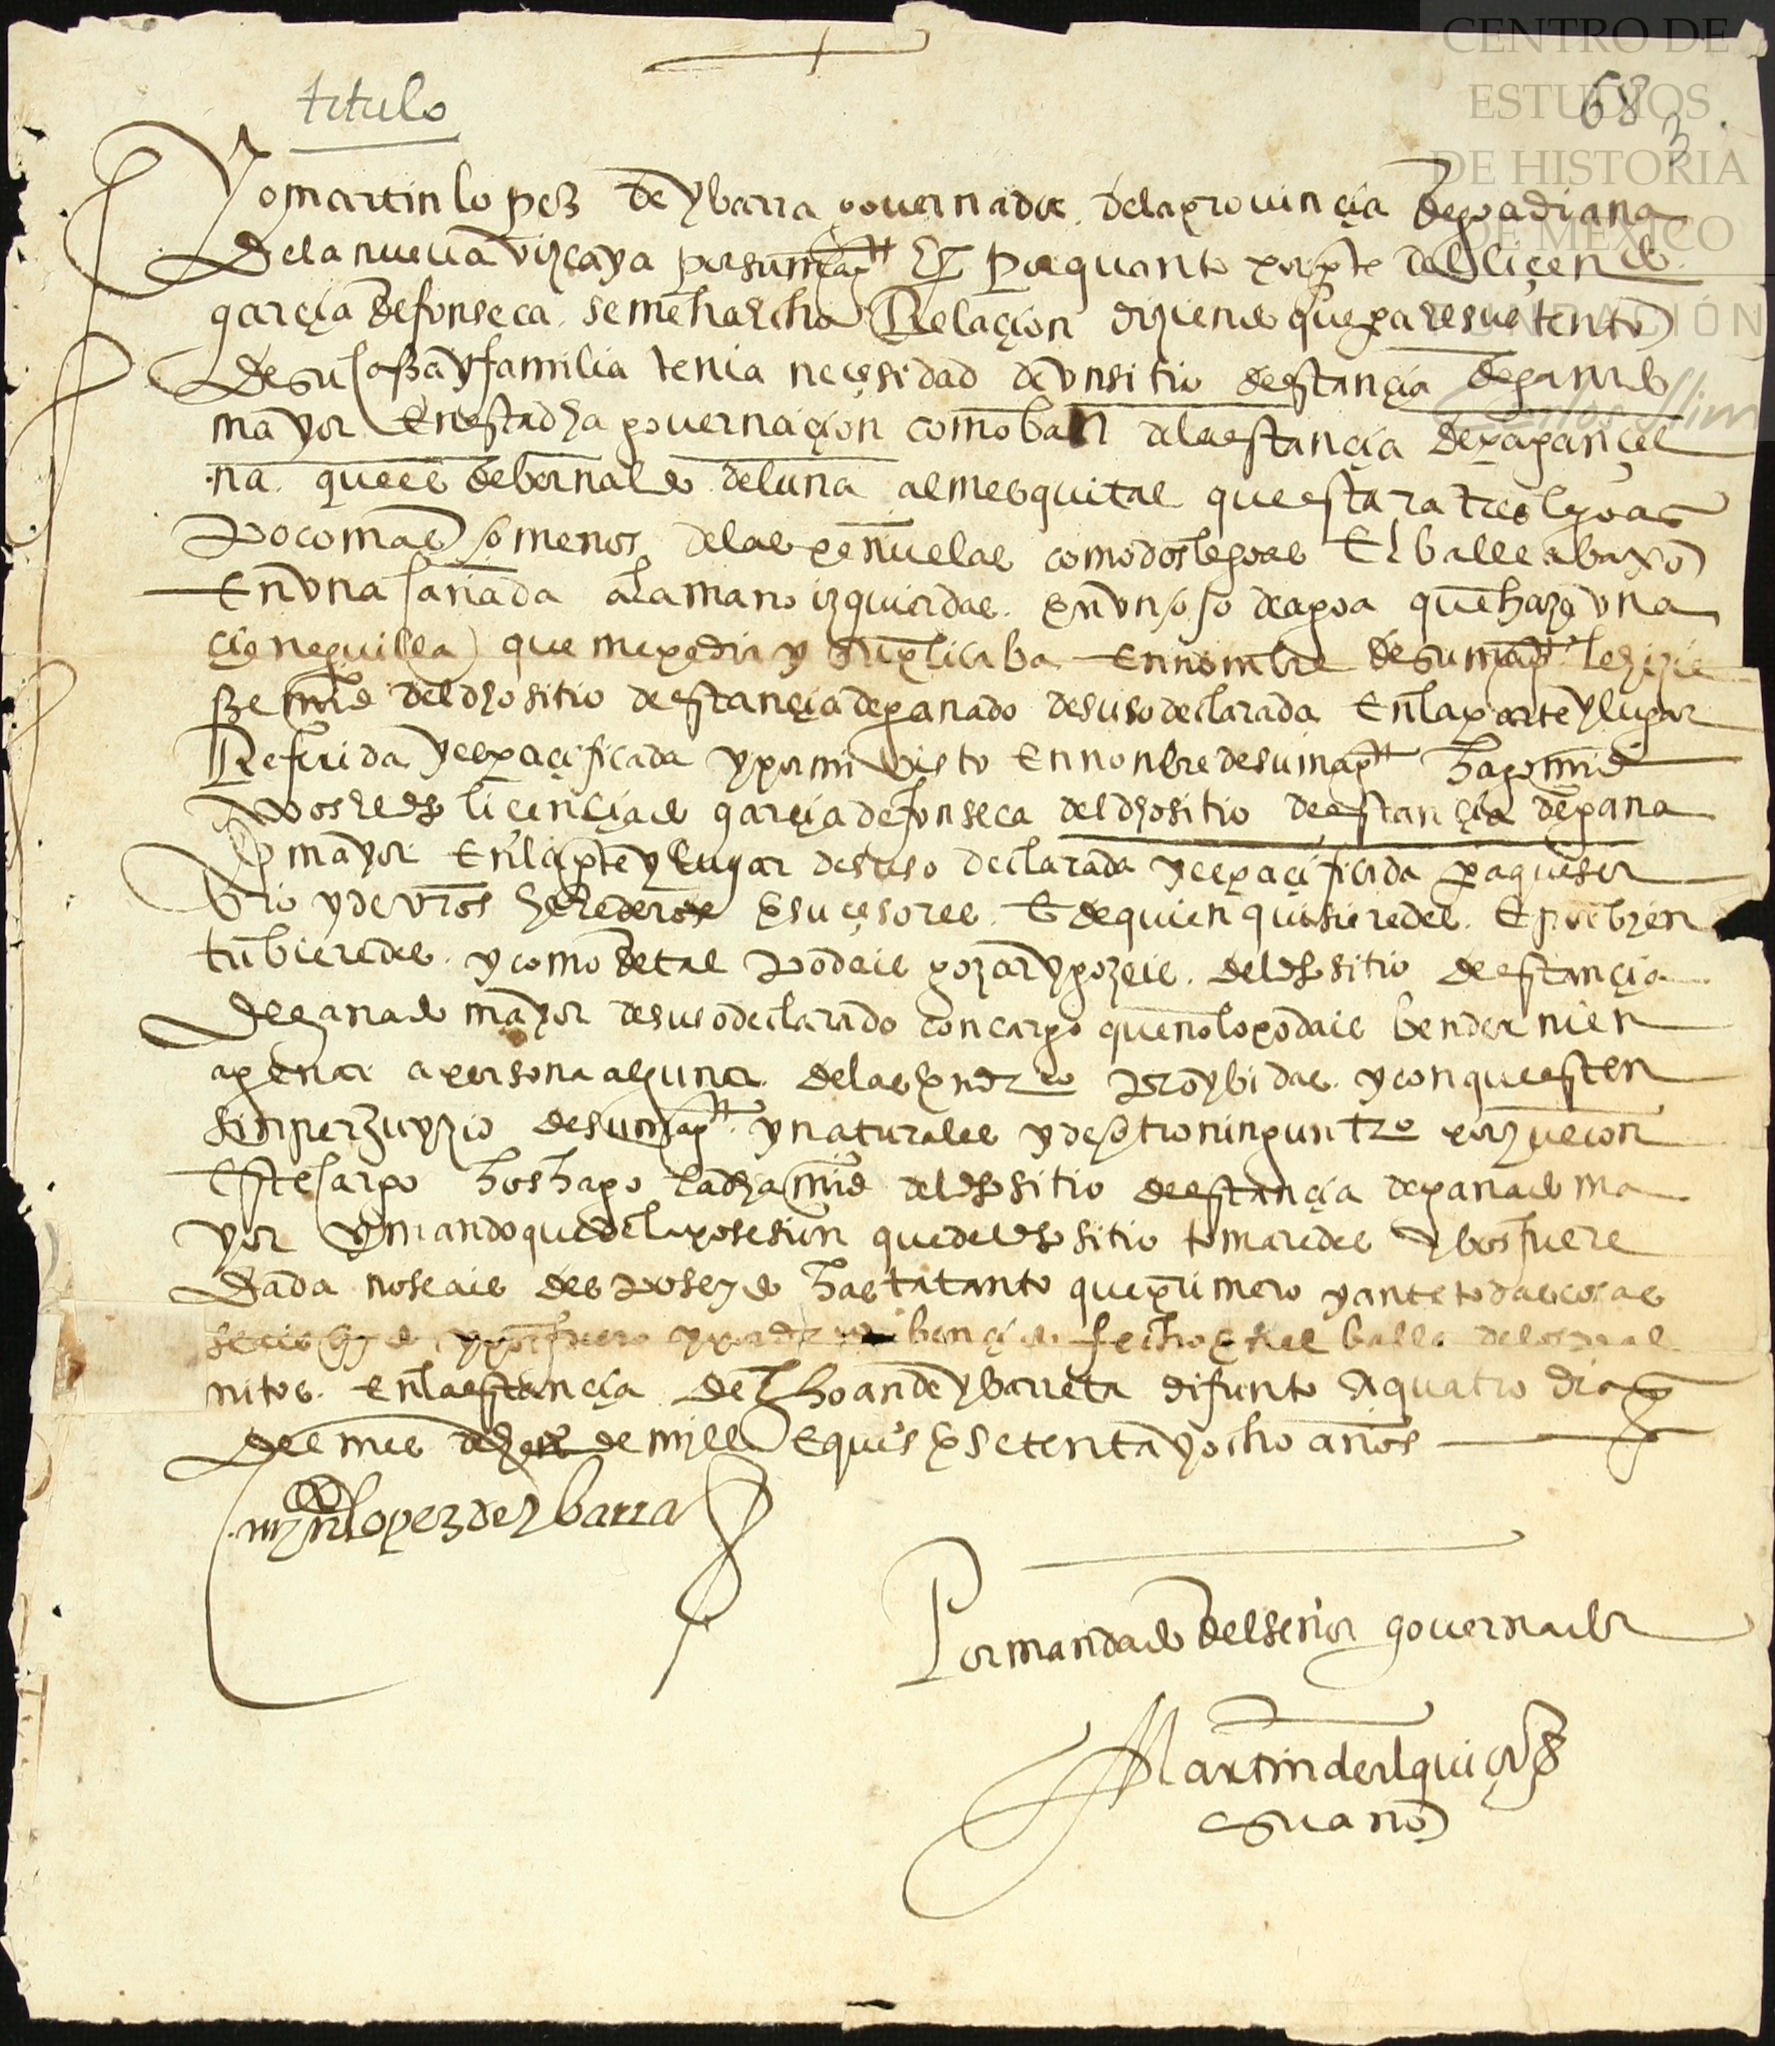 CENTRO DE
ESTUDIOS
DE HISTORIA
DE MÉXICO
titulo
68
3
Yo martin lopez de ybarra governador de la provinçia de goadiana
de la nueva vizcaya por su magt &c por quanto por pte del liçendo
garçia de fonseca se me ha hecho Relaçion diziendo que para el sustento
de su casa y familia tenia neçesidad de un sitio de estançia de ganado
mayor en esta dha governaçion como ban a la estançia de
na que es de bernaldo de luna al mesquital que estara tres leguas
poco mas o menos de las peñuelas como dos leguas el balle abaxo
en una cañada a la mano izquierda en un ojo de agoa que haze una
çieneguilla que me pedia y suplicaba en nombre de su magt le hizie
se mrd del dho sitio de estançia de ganado de suso declarada en la parte y lugar
Referida y espaçificada y por mi bisto en nonbre de su magt hago mrd
a vos el dho liçençiado garçia de fonseca del dho sitio de estançia de gana
do mayor en la pte y lugar de suso declarada y espaçificada para que sea
vro y de vros herederos e suçesores e de quien quisieredes e por bien
tubieredes y como de tal podais gozar y gozeis del dho sitio de estançia
de ganado mayor de suso declarado con cargo que no lo podais bender ni en
agenar a persona alguna de las en dro proybidas y con que este
sin perjuyzio de su magt y naturales y de otro ningun tro por que con
este cargo hos hago la dha mrd del dho sitio de estançia de ganado ma
yor y mando que de la posesion que del dho sitio tomaredes y bos fuere
dada no seais desposeydo hasta tanto que primero y ante todas cosas
seais oydo y por fuero y por dro bençido fecho en el balle de los
nitos en la estançia de Jhoan de ybarreta difunto a quatro dias
del mes de de mill e qus e setenta y ocho años
mrn lopez de ybarra
Por mandado del señor governador
Martin de
esuano